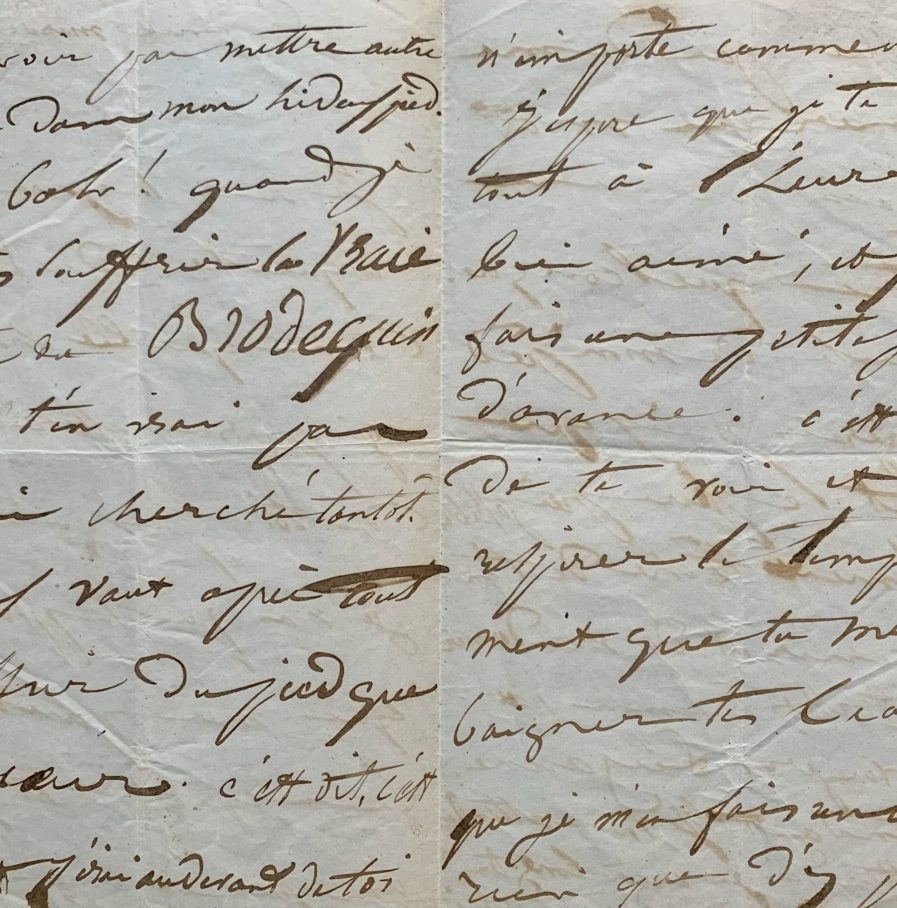 pas mettre autre
Dans mon hideux pied.
bah! quand je
souffrir la vraie
du BRODequin
t'en irai pas
cherché tantôt.
vaut après tout
du pied que
cœur. c'est dit, c'est
j'irai au devant de toi
n'importe comment
j'espère que je te
tout à l'heure
bien aimé, et
fais une petite
d'avance. c'est
de te voir et
respirer le
ment que tu me
baigner tes
que je m'en fais une
rien que d'y